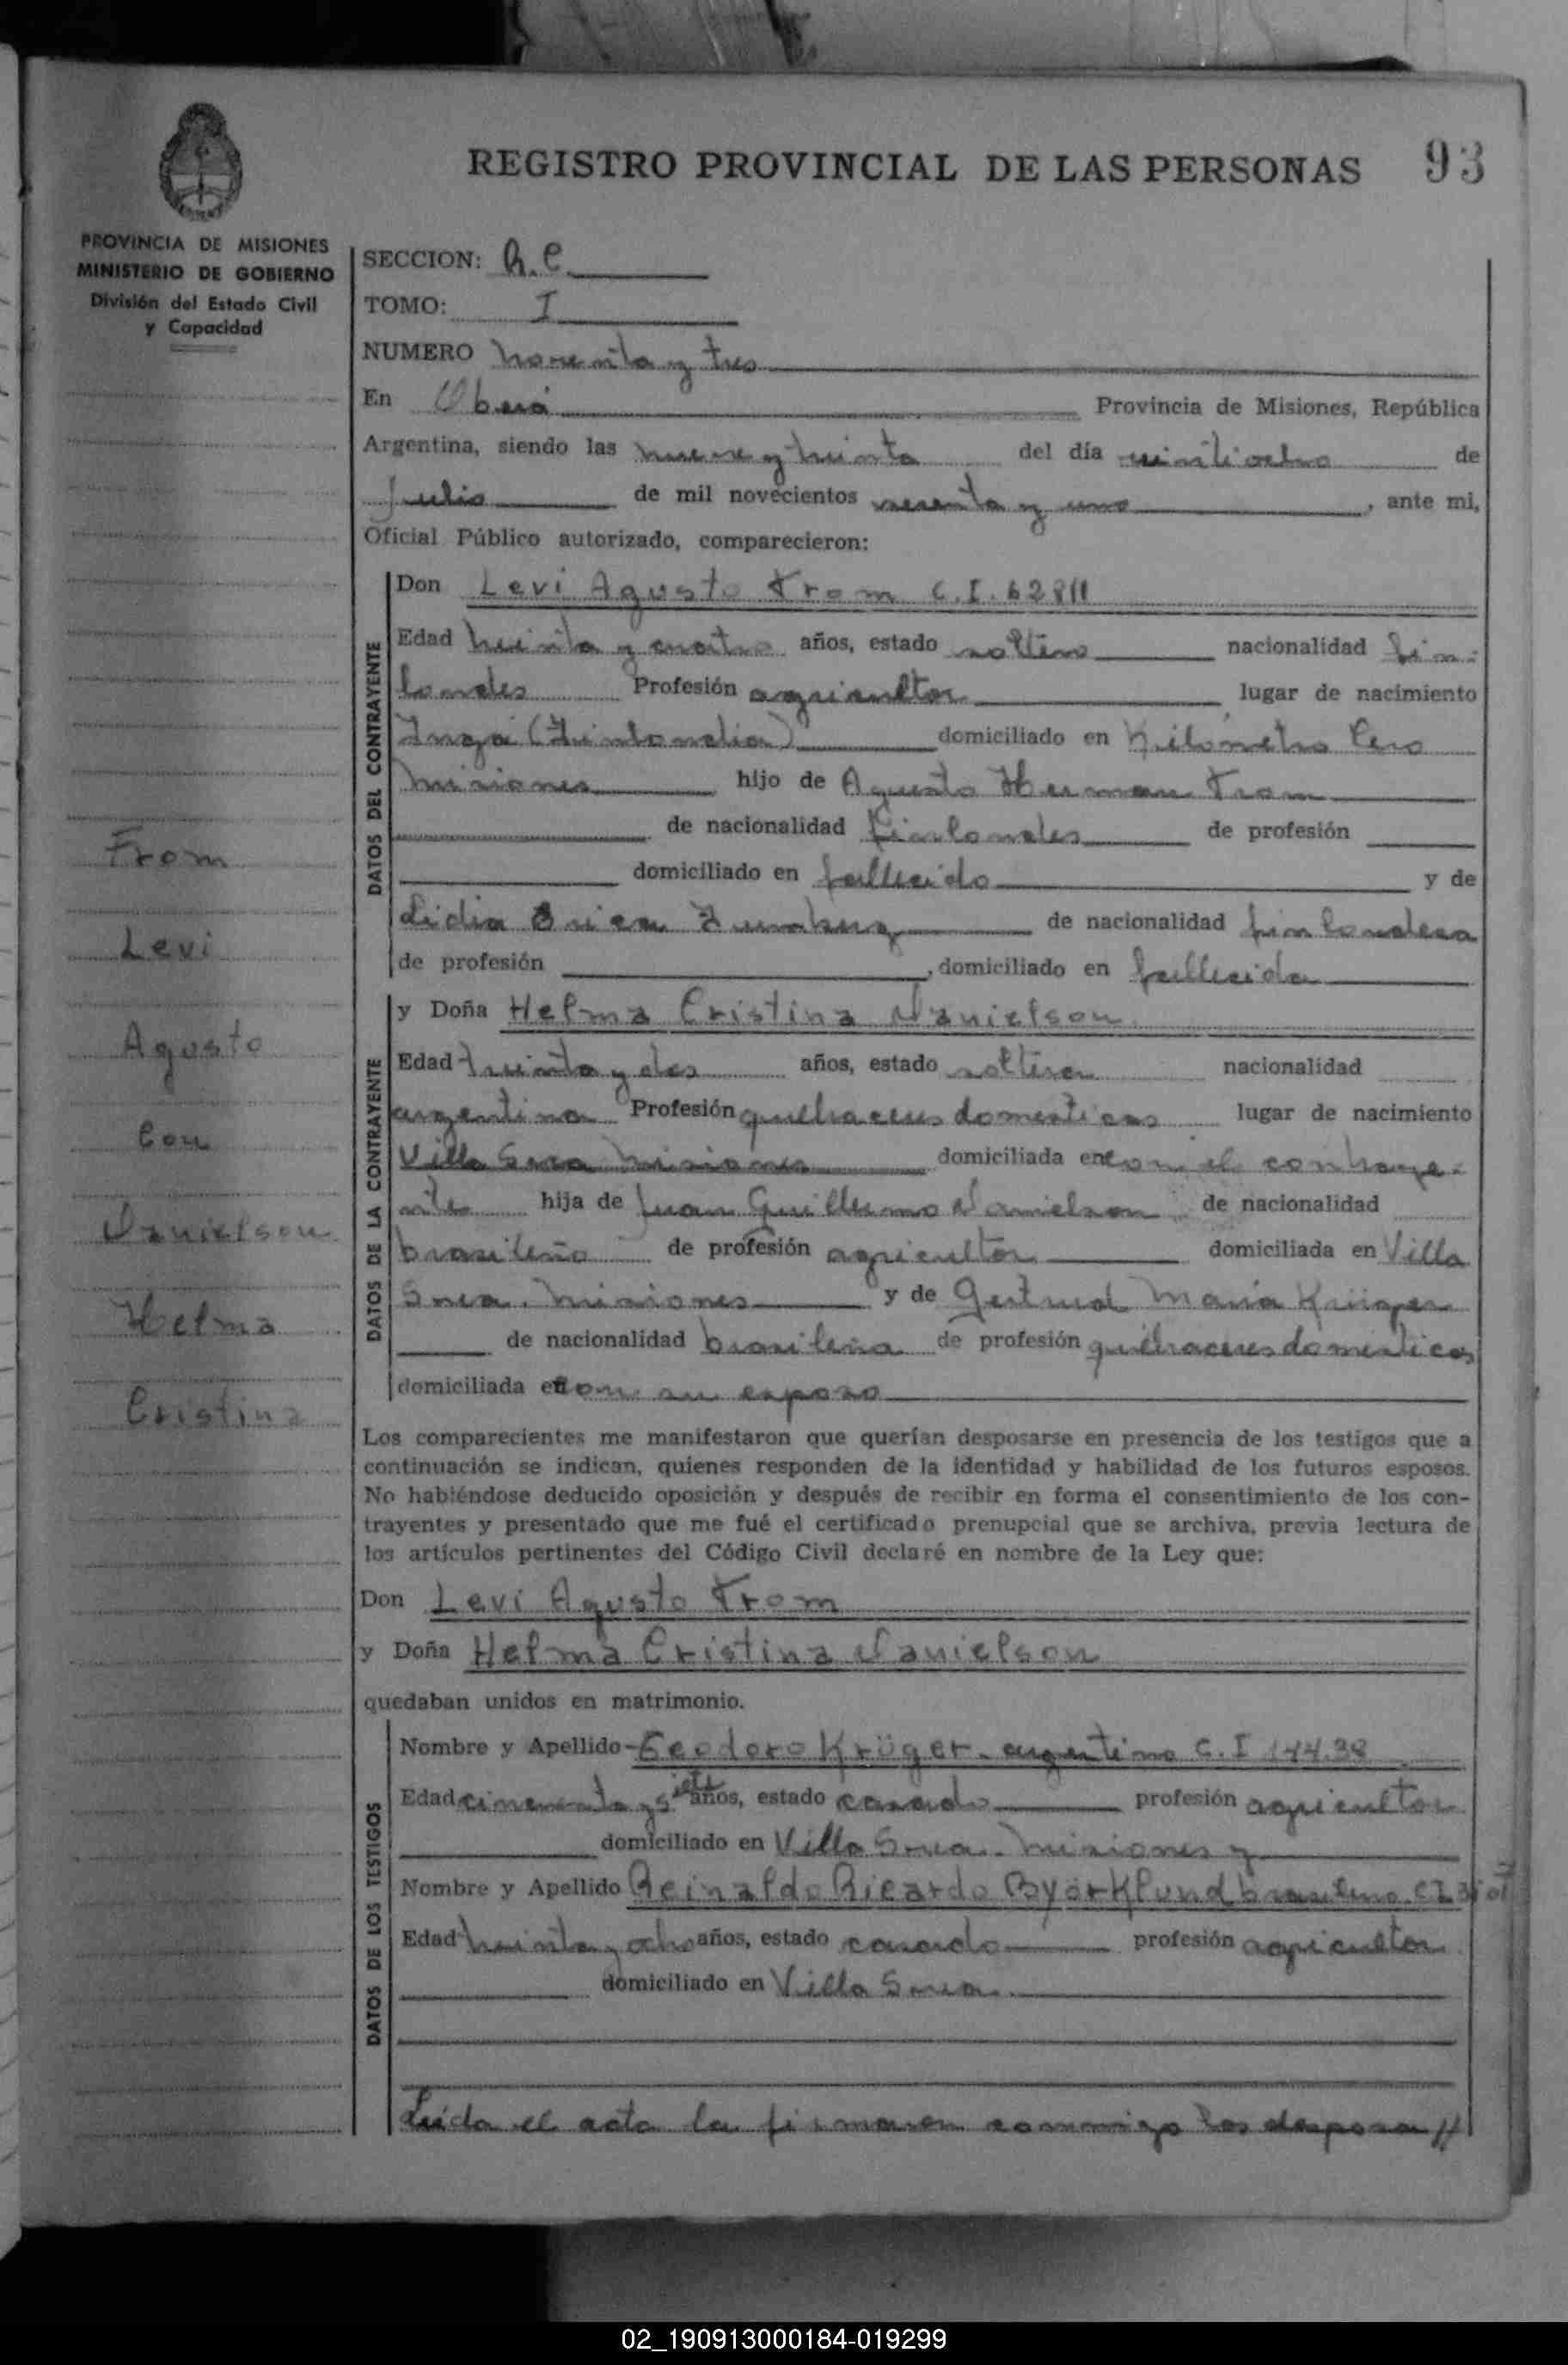 REGISTRO PROVINCIAL DE LAS PERSONAS 93
PROVINCIA DE MISIONES
MINISTERIO DE GOBIERNO
División del Estado Civil
y Capacidad
From
Levi
Agusto
Con
Danielson
Helma
Cristina
SECCION: R.C.
TOMO: I
NUMERO noventa y tres
En Oberá Provincia de Misiones, República
Argentina, siendo las nueve y treinta del día veintiocho de
Julio de mil novecientos sesenta y uno, ante mi,
Oficial Público autorizado, comparecieron:
DATOS DEL CONTRAYENTE
Don Levi Agusto From C.I. 62811
Edad treinta y cuatro años, estado soltero nacionalidad fin-
landes Profesión agricultor lugar de nacimiento
(Finlandia) domiciliado en Kilómetro Cero
Misiones hijo de Agusto Herman From
de nacionalidad finlandes de profesión
domiciliado en fallecido y de
Lidia de nacionalidad finlandesa
de profesión , domiciliado en fallecida
DATOS DE LA CONTRAYENTE
y Doña Helma Cristina Danielson
Edad treinta y dos años, estado soltera nacionalidad
argentina Profesión quehaceres domesticos lugar de nacimiento
Villa Svea Misiones domiciliada en con el contraye-
nte hija de Juan Guillermo Danielson de nacionalidad
brasileño de profesión agricultor domiciliada en Villa
Svea. Misiones y de Gertrud Maria Krüger
de nacionalidad brasileña de profesión quehaceres domesticos
domiciliada en con su esposo
Los comparecientes me manifestaron que querían desposarse en presencia de los testigos que a
continuación se indican, quienes responden de la identidad y habilidad de los futuros esposos.
No habiéndose deducido oposición y después de recibir en forma el consentimiento de los con-
trayentes y presentado que me fué el certificado prenupcial que se archiva, previa lectura de
los artículos pertinentes del Código Civil declaré en nombre de la Ley que:
Don Levi Agusto From
y Doña Helma Cristina Danielson
quedaban unidos en matrimonio.
DATOS DE LOS TESTIGOS
Nombre y Apellido Teodoro Krüger. argentino C.I 144.38
Edad cincuenta y siete años, estado casado profesión agricultor
domiciliado en Villa Svea. Misiones y
Nombre y Apellido Reinaldo Ricardo Byörklund brasileno C.I
Edad treinta y ocho años, estado casado profesión agricultor
domiciliado en Villa Svea.
Leida el acta la firmaron conmigo los desposa//
02_190913000184-019299